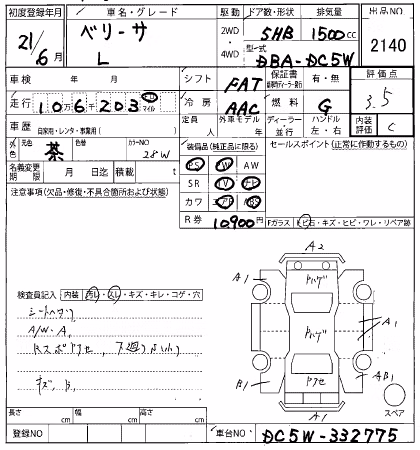 初度登録年月 車名・グレード 駆動 ドア数・形状 排気量 出品NO
21/6月 ベリーサ L 2WD 4WD 5HB 1500cc 2140
型式 DBA-DC5W
車検 年 月 シフト FAT 保証書 有・無 評価点 3.5
走行 10万6千203 キロ マイル 冷房 AAC 燃料 G
車歴 自家用・レンタ・事業用( ) 定員 人 外車モデル 年 ディーラー・並行 ハンドル 左・右 内装評価 C
外色 元色 茶 色替 カラーNO 28W 装備品(純正品に限る) セールスポイント(正常に作動するもの)
PS PW AW
名義変更期限 月 日迄 積載 t SR TV ナビ
注意事項(欠品・修復・不具合箇所および状態) カワ エアB ABS
R券 10,900円 Fガラス ヒビ石・キズ・ヒビ・ワレ・リペア跡
A2
A1 ハゲ
検査員記入 内装 汚レ・スレ・キズ・キレ・コゲ・穴
シートヘタリ
A/W・A ハゲ A1
キズ、B、 B1 アセ AB1
A1 スペア
長さ cm 幅 cm 高さ cm
登録NO 車台NO DC5W-332775